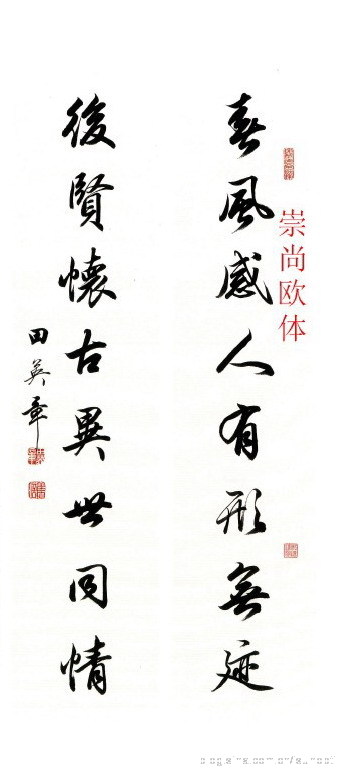 春風感人有形無迹
後賢懷古異世同情
田英章
崇尚欧体